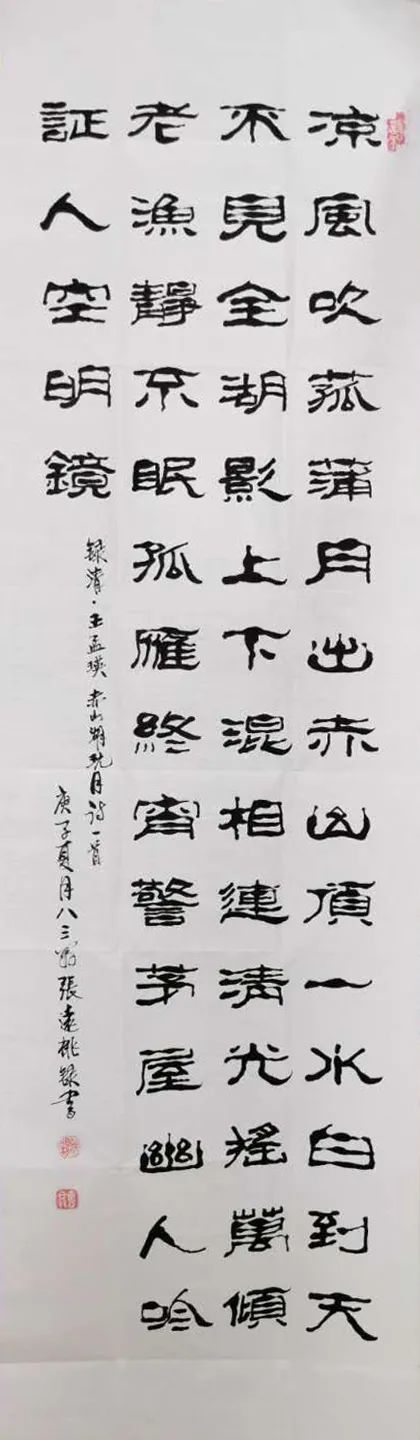 涼風吹菰蒲月出赤山頂一水白到天
不見全湖影上下混相連清光搖萬傾
老漁靜不眠孤雁終宵警茅屋幽人吟
証人空明鏡
録清·王孟瑛赤山湖玩月诗一首
庚子夏月八三翁張遠桃録書